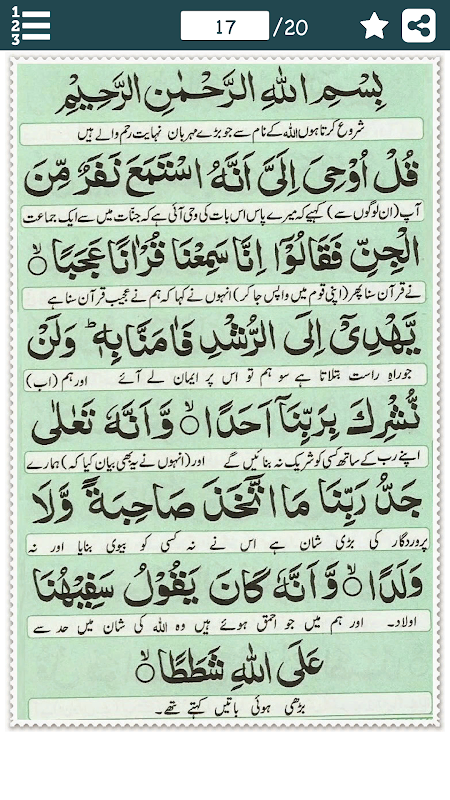 1
2
3
17 /20
بِسْمِ اللهِ الرَّحْمٰنِ الرَّحِيْمِ
شروع کرتا ہوں اللہ کے نام سے جو بڑے مہربان نہایت رحم والے ہیں
قُلْ اُوْحِیَ اِلَیَّ اَنَّهُ اسْتَمَعَ نَفَرٌ مِّنَ
آپ (ان لوگوں سے) کہیے کہ میرے پاس اس بات کی وحی آئی ہے کہ جنات میں سے ایک جماعت
الْجِنِّ فَقَالُوْۤا اِنَّا سَمِعْنَا قُرْاٰنًا عَجَبًا ۙ
نے قرآن سنا پھر (اپنی قوم میں واپس جا کر) انہوں نے کہا کہ ہم نے عجیب قرآن سنا ہے
یَّهْدِیْۤ اِلَی الرُّشْدِ فَاٰمَنَّا بِهٖ ؕ وَلَنْ
جو راہِ راست بتلاتا ہے سو ہم تو اس پر ایمان لے آئے اور ہم (اب)
نُّشْرِكَ بِرَبِّنَاۤ اَحَدًا ۙ وَّاَنَّهٗ تَعٰلٰی
اپنے رب کے ساتھ کسی کو شریک نہ بنائیں گے اور (انہوں نے یہ بھی بیان کیا کہ) ہمارے
جَدُّ رَبِّنَا مَا اتَّخَذَ صَاحِبَةً وَّلَا
پروردگار کی بڑی شان ہے اس نے نہ کسی کو بیوی بنایا اور نہ
وَلَدًا ۙ وَّاَنَّهٗ كَانَ یَقُوْلُ سَفِیْهُنَا
اولاد۔ اور ہم میں جو احمق ہوئے ہیں وہ اللہ کی شان میں حد سے
عَلَی اللهِ شَطَطًا ۙ
بڑھی ہوئی باتیں کہتے تھے۔